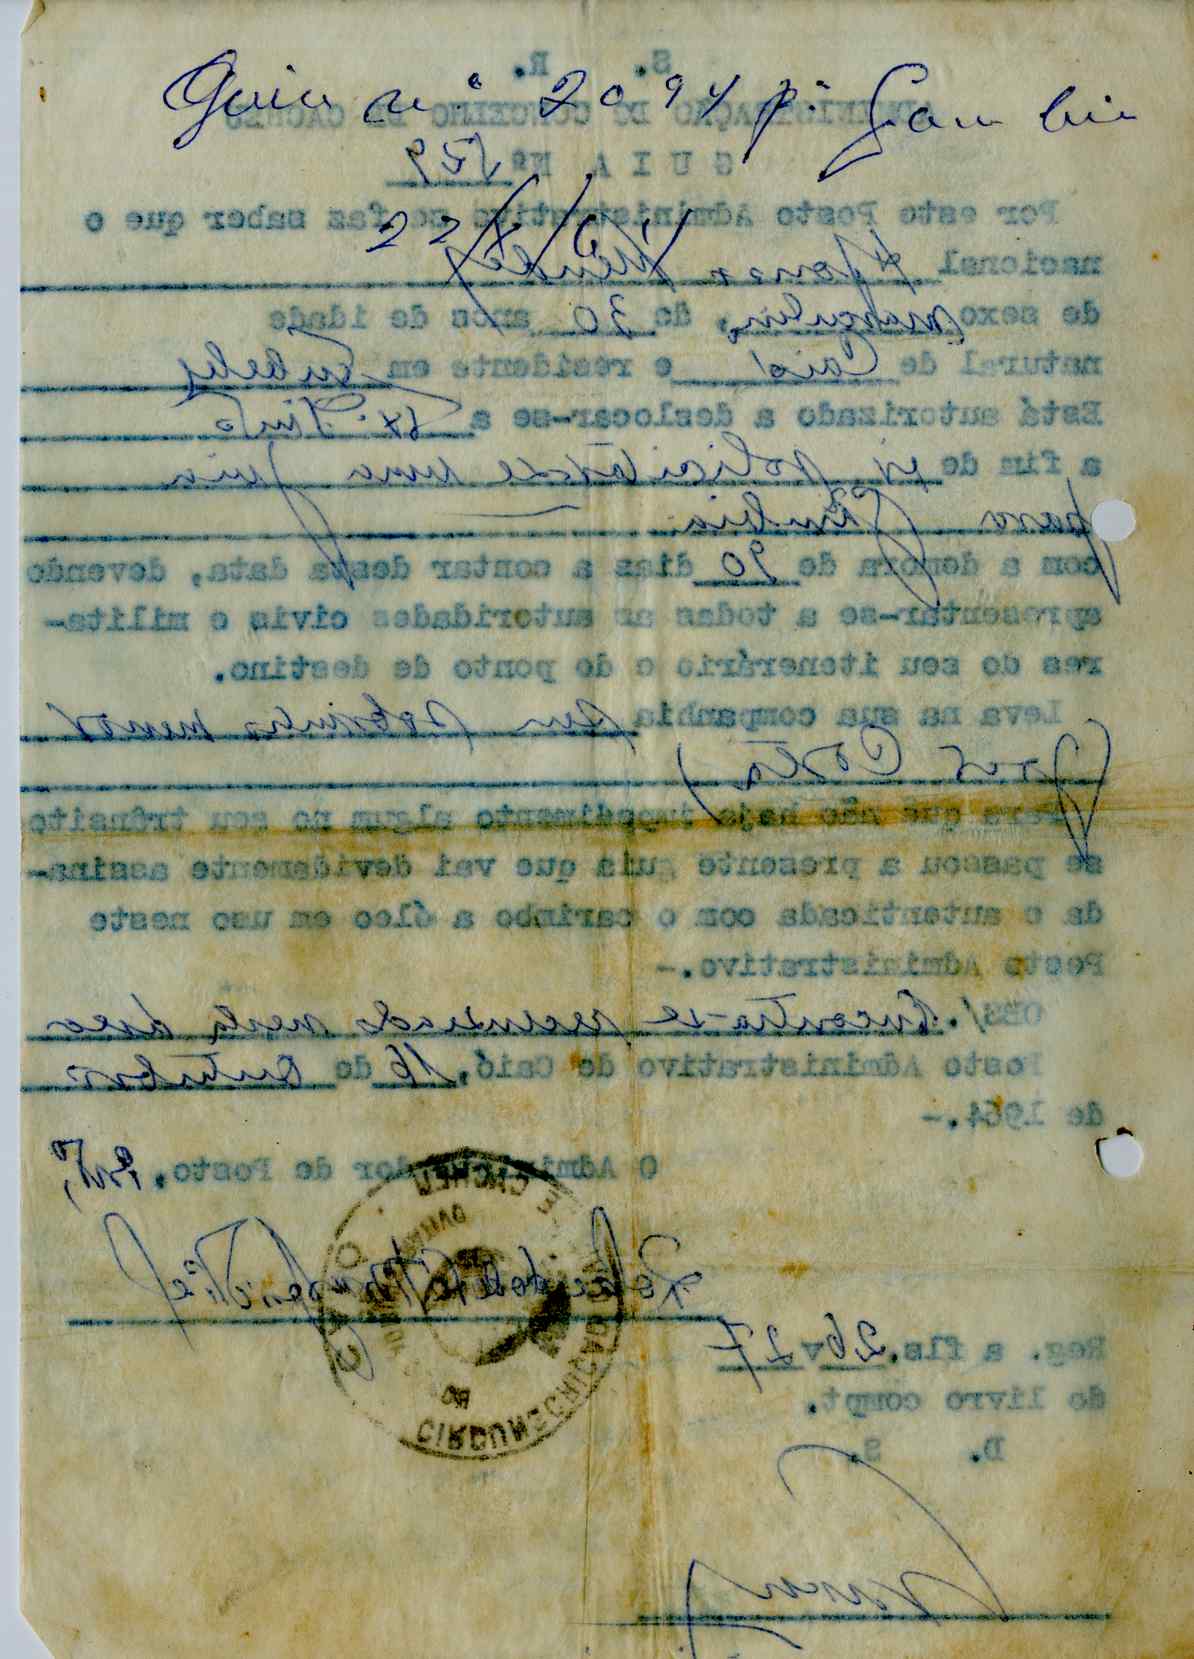 Guia nº 2094 p: Gambia
22/X/64
S. R.
ADMINISTRAÇÃO DO CONCELHO DE CACHEU
GUIA Nº 529
Por este Posto Administrativo se faz saber que o
nacional Afonso Mendes
de sexo masculino, de 30 anos de idade
natural de Caió e residente em
Está autorizado a deslocar-se a
a fim de solicitar-se uma guia
para Gâmbia.
com a demora de 90 dias a contar desta data, devendo
apresentar-se a todas as autoridades civis e milita-
res do seu itenerário e do ponto de destino.
Leva na sua companhia seu sobrinho menor
(José Costa)
Para que não haja impedimento algum no seu trânsito
se passou a presente guia que vai devidamente assina-
da e autenticada com o carimbo a óleo em uso neste
Posto Administrativo.-
OBS/. Encontra-se recenseado nesta área
Posto Administrativo de Caió, 16 de Outubro
de 1964.-
O Administrador de Posto,
CIRCUNSCRIÇÃO
CACHEU
Reg. a fls. 26v 27
do livro compt.
D. S.